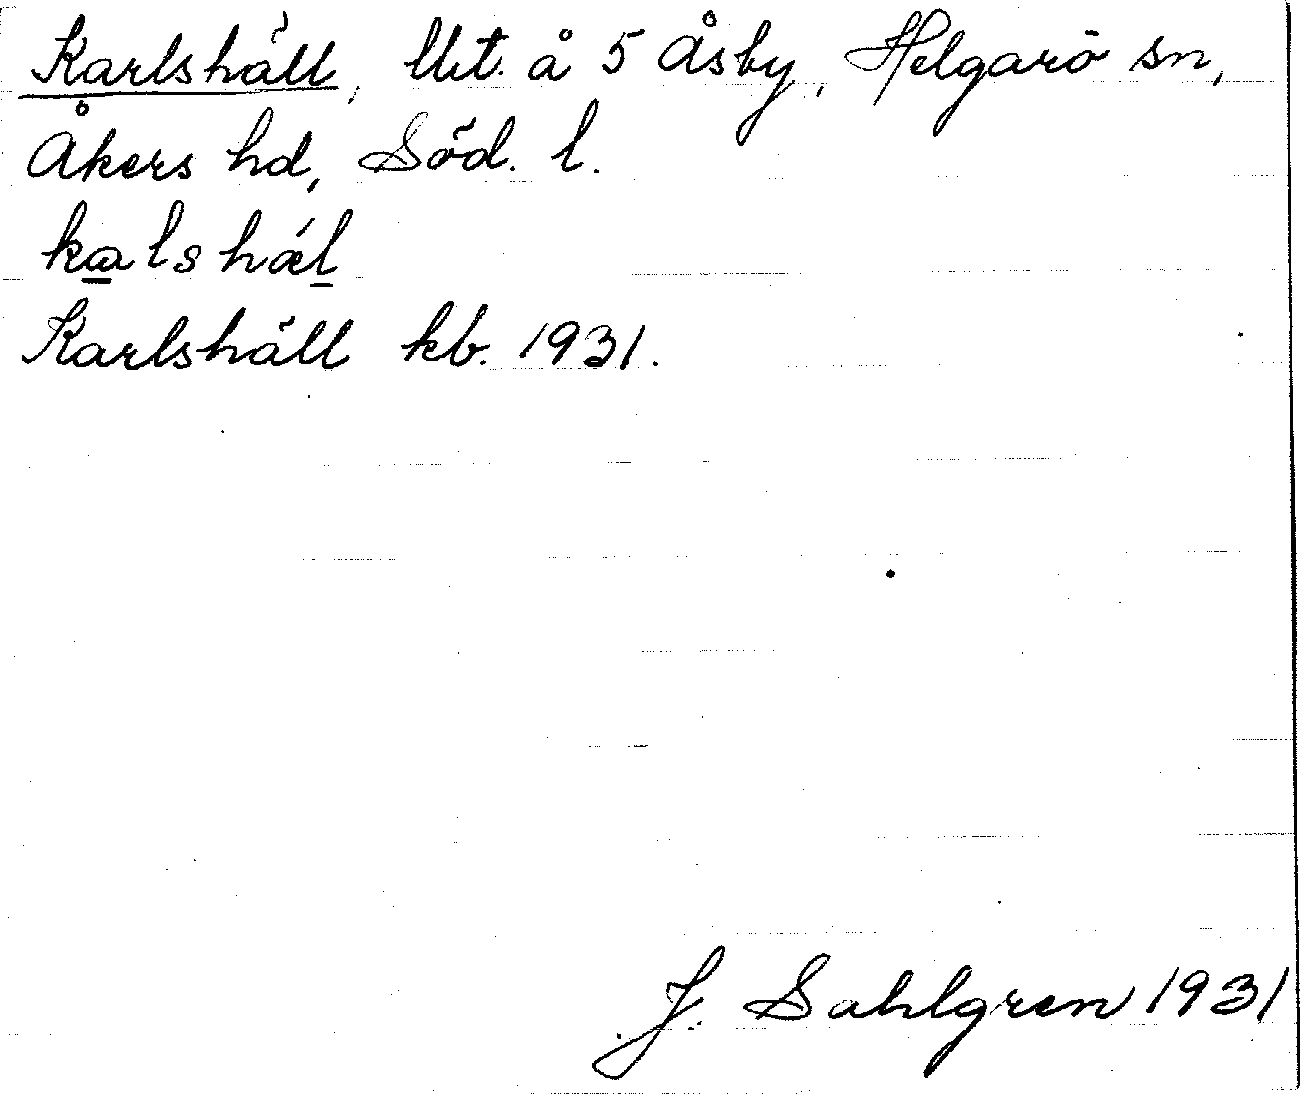 Karlshäll, Utt. å 5 Åsby, Helgarö sn,
Åkers hd, Söd. l.
kalshǽl
Karlshäll kb. 1931.
J. Sahlgren 1931